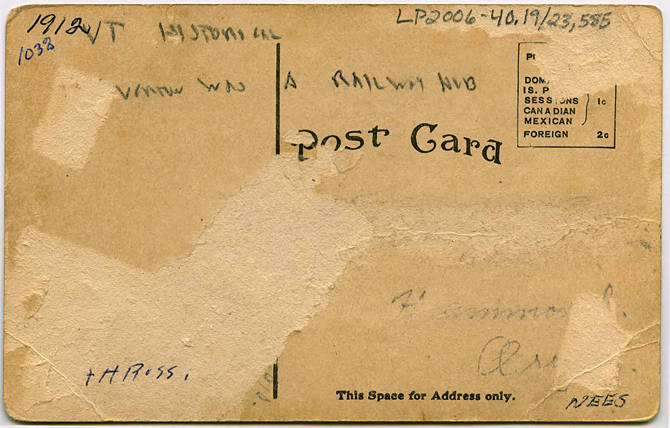 1912 VT HISTORICAL
LP2006-40.19/23,585
1038
WAS A RAILWAY HUB
Post Card
DOM
IS. P
SESSIONS
CANADIAN
MEXICAN
1c
FOREIGN 2c
+H Ross.
This Space for Address only.
NEES